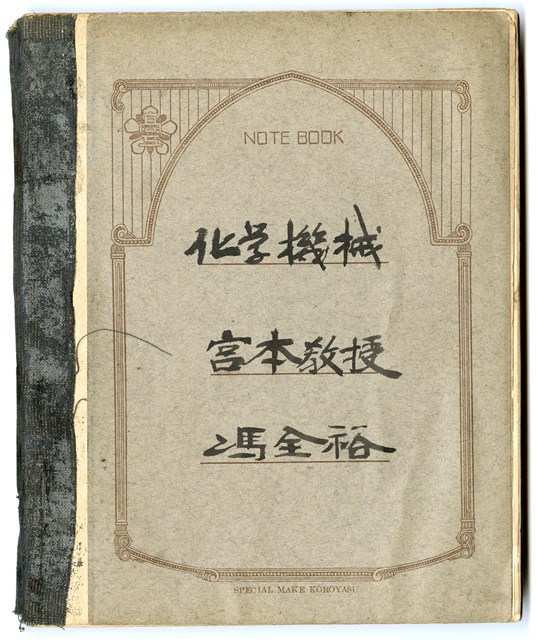 NOTE BOOK
化学機械
宮本教授
馮全裕
SPECIAL MAKE KOKOYASU